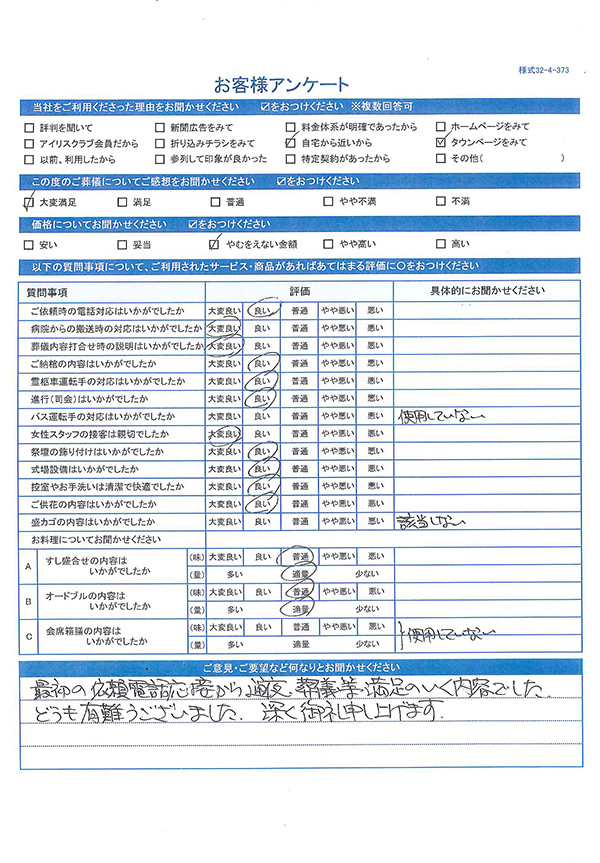 様式32-4-373
お客様アンケート
当社をご利用くださった理由をお聞かせください ☑をおつけください ※複数回答可
□ 評判を聞いて □ 新聞広告をみて □ 料金体系が明確であったから □ ホームページをみて
□ アイリスクラブ会員だから □ 折り込みチラシをみて ☑ 自宅から近いから ☑ タウンページをみて
□ 以前、利用したから □ 参列して印象が良かった □ 特定契約があったから □ その他( )
この度のご葬儀についてご感想をお聞かせください ☑をおつけください
☑ 大変満足 □ 満足 □ 普通 □ やや不満 □ 不満
価格についてお聞かせください ☑をおつけください
□ 安い □ 妥当 ☑ やむをえない金額 □ やや高い □ 高い
以下の質問事項について、ご利用されたサービス・商品があればあてはまる評価に〇をお読けください
質問事項 評価 具体的にお聞かせください
ご依頼時の電話対応はいかがでしたか 大変良い 良い 普通 やや悪い 悪い
病院からの搬送時の対応はいかがでしたか 大変良い 良い 普通 やや悪い 悪い
葬儀内容打合せ時の説明はいかがでしたか 大変良い 良い 普通 やや悪い 悪い
ご納棺の内容はいかがでしたか 大変良い 良い 普通 やや悪い 悪い
霊柩車運転手の対応はいかがでしたか 大変良い 良い 普通 やや悪い 悪い
進行(司会)はいかがでしたか 大変良い 良い 普通 やや悪い 悪い
バス運転手の対応はいかがでしたか 大変良い 良い 普通 やや悪い 悪い 使用していない
女性スタッフの接客は親切でしたか 大変良い 良い 普通 やや悪い 悪い
祭壇の飾り付けはいかがでしたか 大変良い 良い 普通 やや悪い 悪い
式場設備はいかがでしたか 大変良い 良い 普通 やや悪い 悪い
控室やお手洗いは清潔で快適でしたか 大変良い 良い 普通 やや悪い 悪い
ご供花の内容はいかがでしたか 大変良い 良い 普通 やや悪い 悪い
盛カゴの内容はいかがでしたか 大変良い 良い 普通 やや悪い 悪い 該当しない
お料理についてお聞かせください
A すし盛合せの内容は いかがでしたか (味) 大変良い 良い 普通 やや悪い 悪い
(量) 多い 適量 少ない
B オードブルの内容は いかがでしたか (味) 大変良い 良い 普通 やや悪い 悪い
(量) 多い 適量 少ない
C 会席箱議の内容は いかがでしたか (味) 大変良い 良い 普通 やや悪い 悪い 使用していない
(量) 多い 適量 少ない
ご意見・ご要望など何なりとお聞かせください
最初の依頼電話応接から通夜、葬義等満足のいく内容でした.
どうも有難うございました. 深く御礼申し上げます.